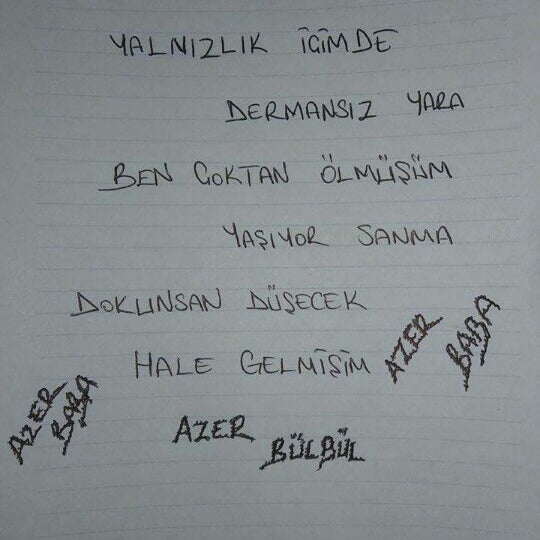 YALNIZLIK İÇİMDE
DERMANSIZ YARA
BEN ÇOKTAN ÖLMÜŞÜM
YAŞIYOR SANMA
DOKUNSAN DÜŞECEK
HALE GELMİŞİM
AZER BABA
AZER BABA
AZER BÜLBÜL